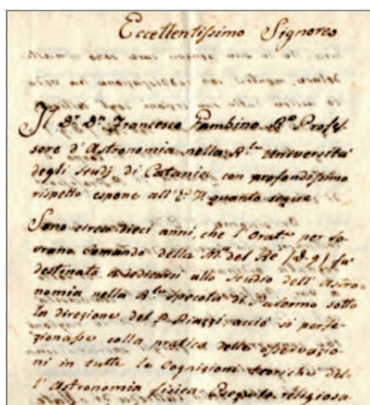 Eccellentissimo Signore
Il D.r D.n Francesco Gambino R.o Profes-
sore d'Astronomia nella R.le Università
degli studj di Catania con profondissimo
rispetto espone all'E. V. quanto segue.
Sono circa dieci anni, che l'Orat.e per so-
vrano comando della M. del Re (d. g.) fu
destinato a dedicarsi allo studio dell'Astro-
nomia nella R.le specola di Palermo sotto
la direzione del P. Piazzi acciò si perfe-
zionasse colla pratica delle osservazio-
ni in tutte le cognizioni teoriche del-
l'Astronomia fisica. Eseguito religiosa